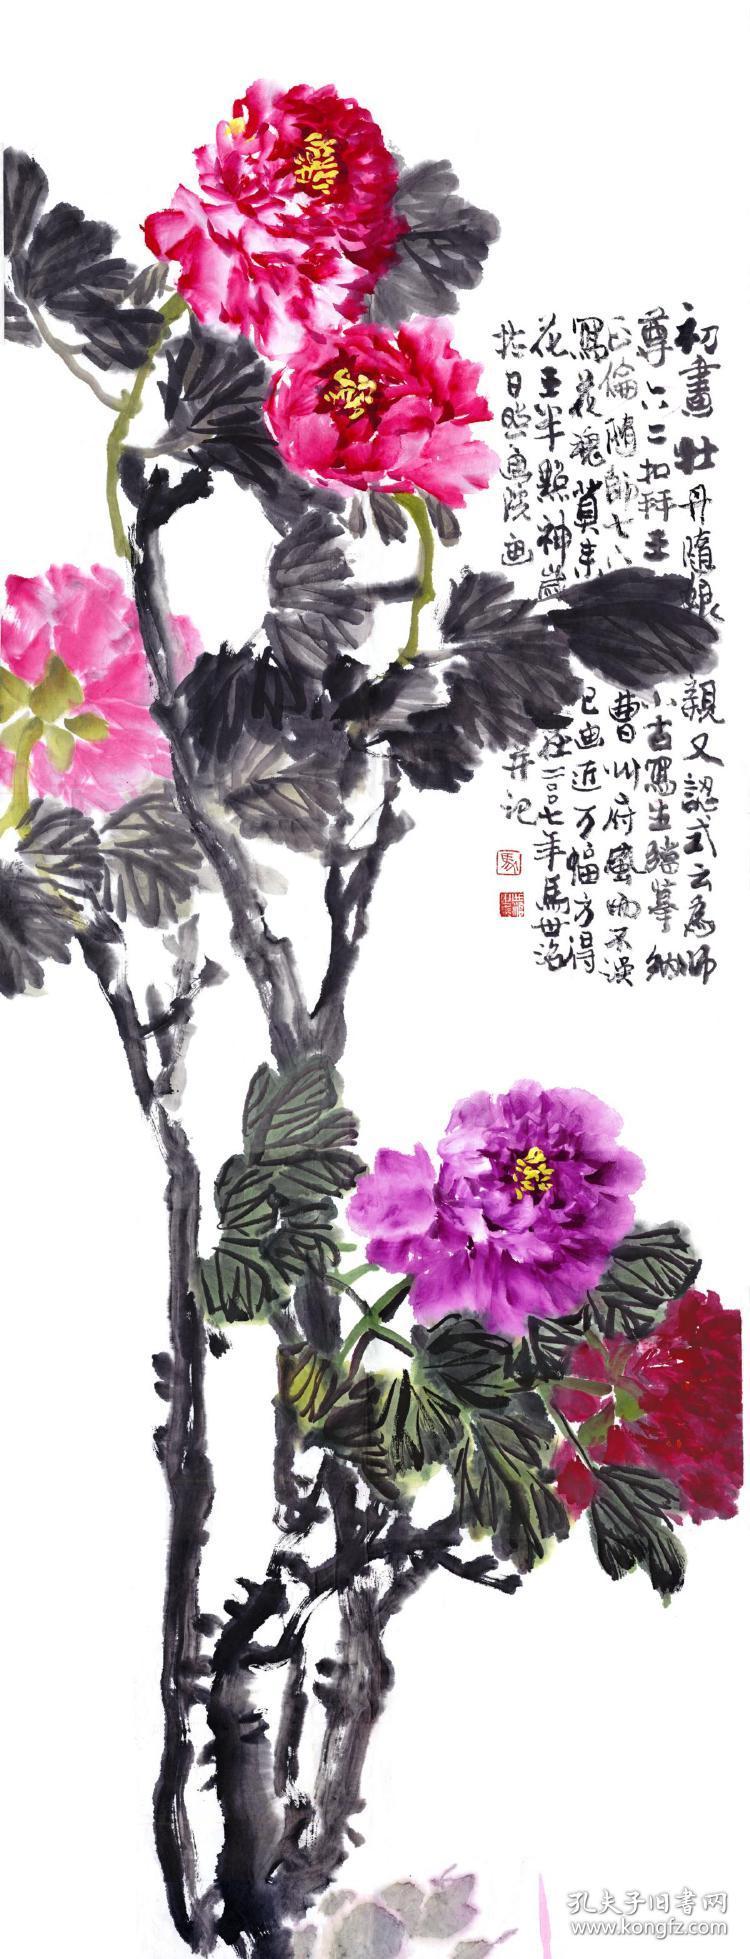 初畫牡丹隨娘親又認式云為師
尊六二扣拜王小古寫生臨摹納
正倫隨師七八曹州府盛而不误
寫花魂貫未已画近万幅方得
花王半點神嵗在二〇〇七年馬世治
於日照画院画并记
孔夫子旧书网
www.kongfz.com